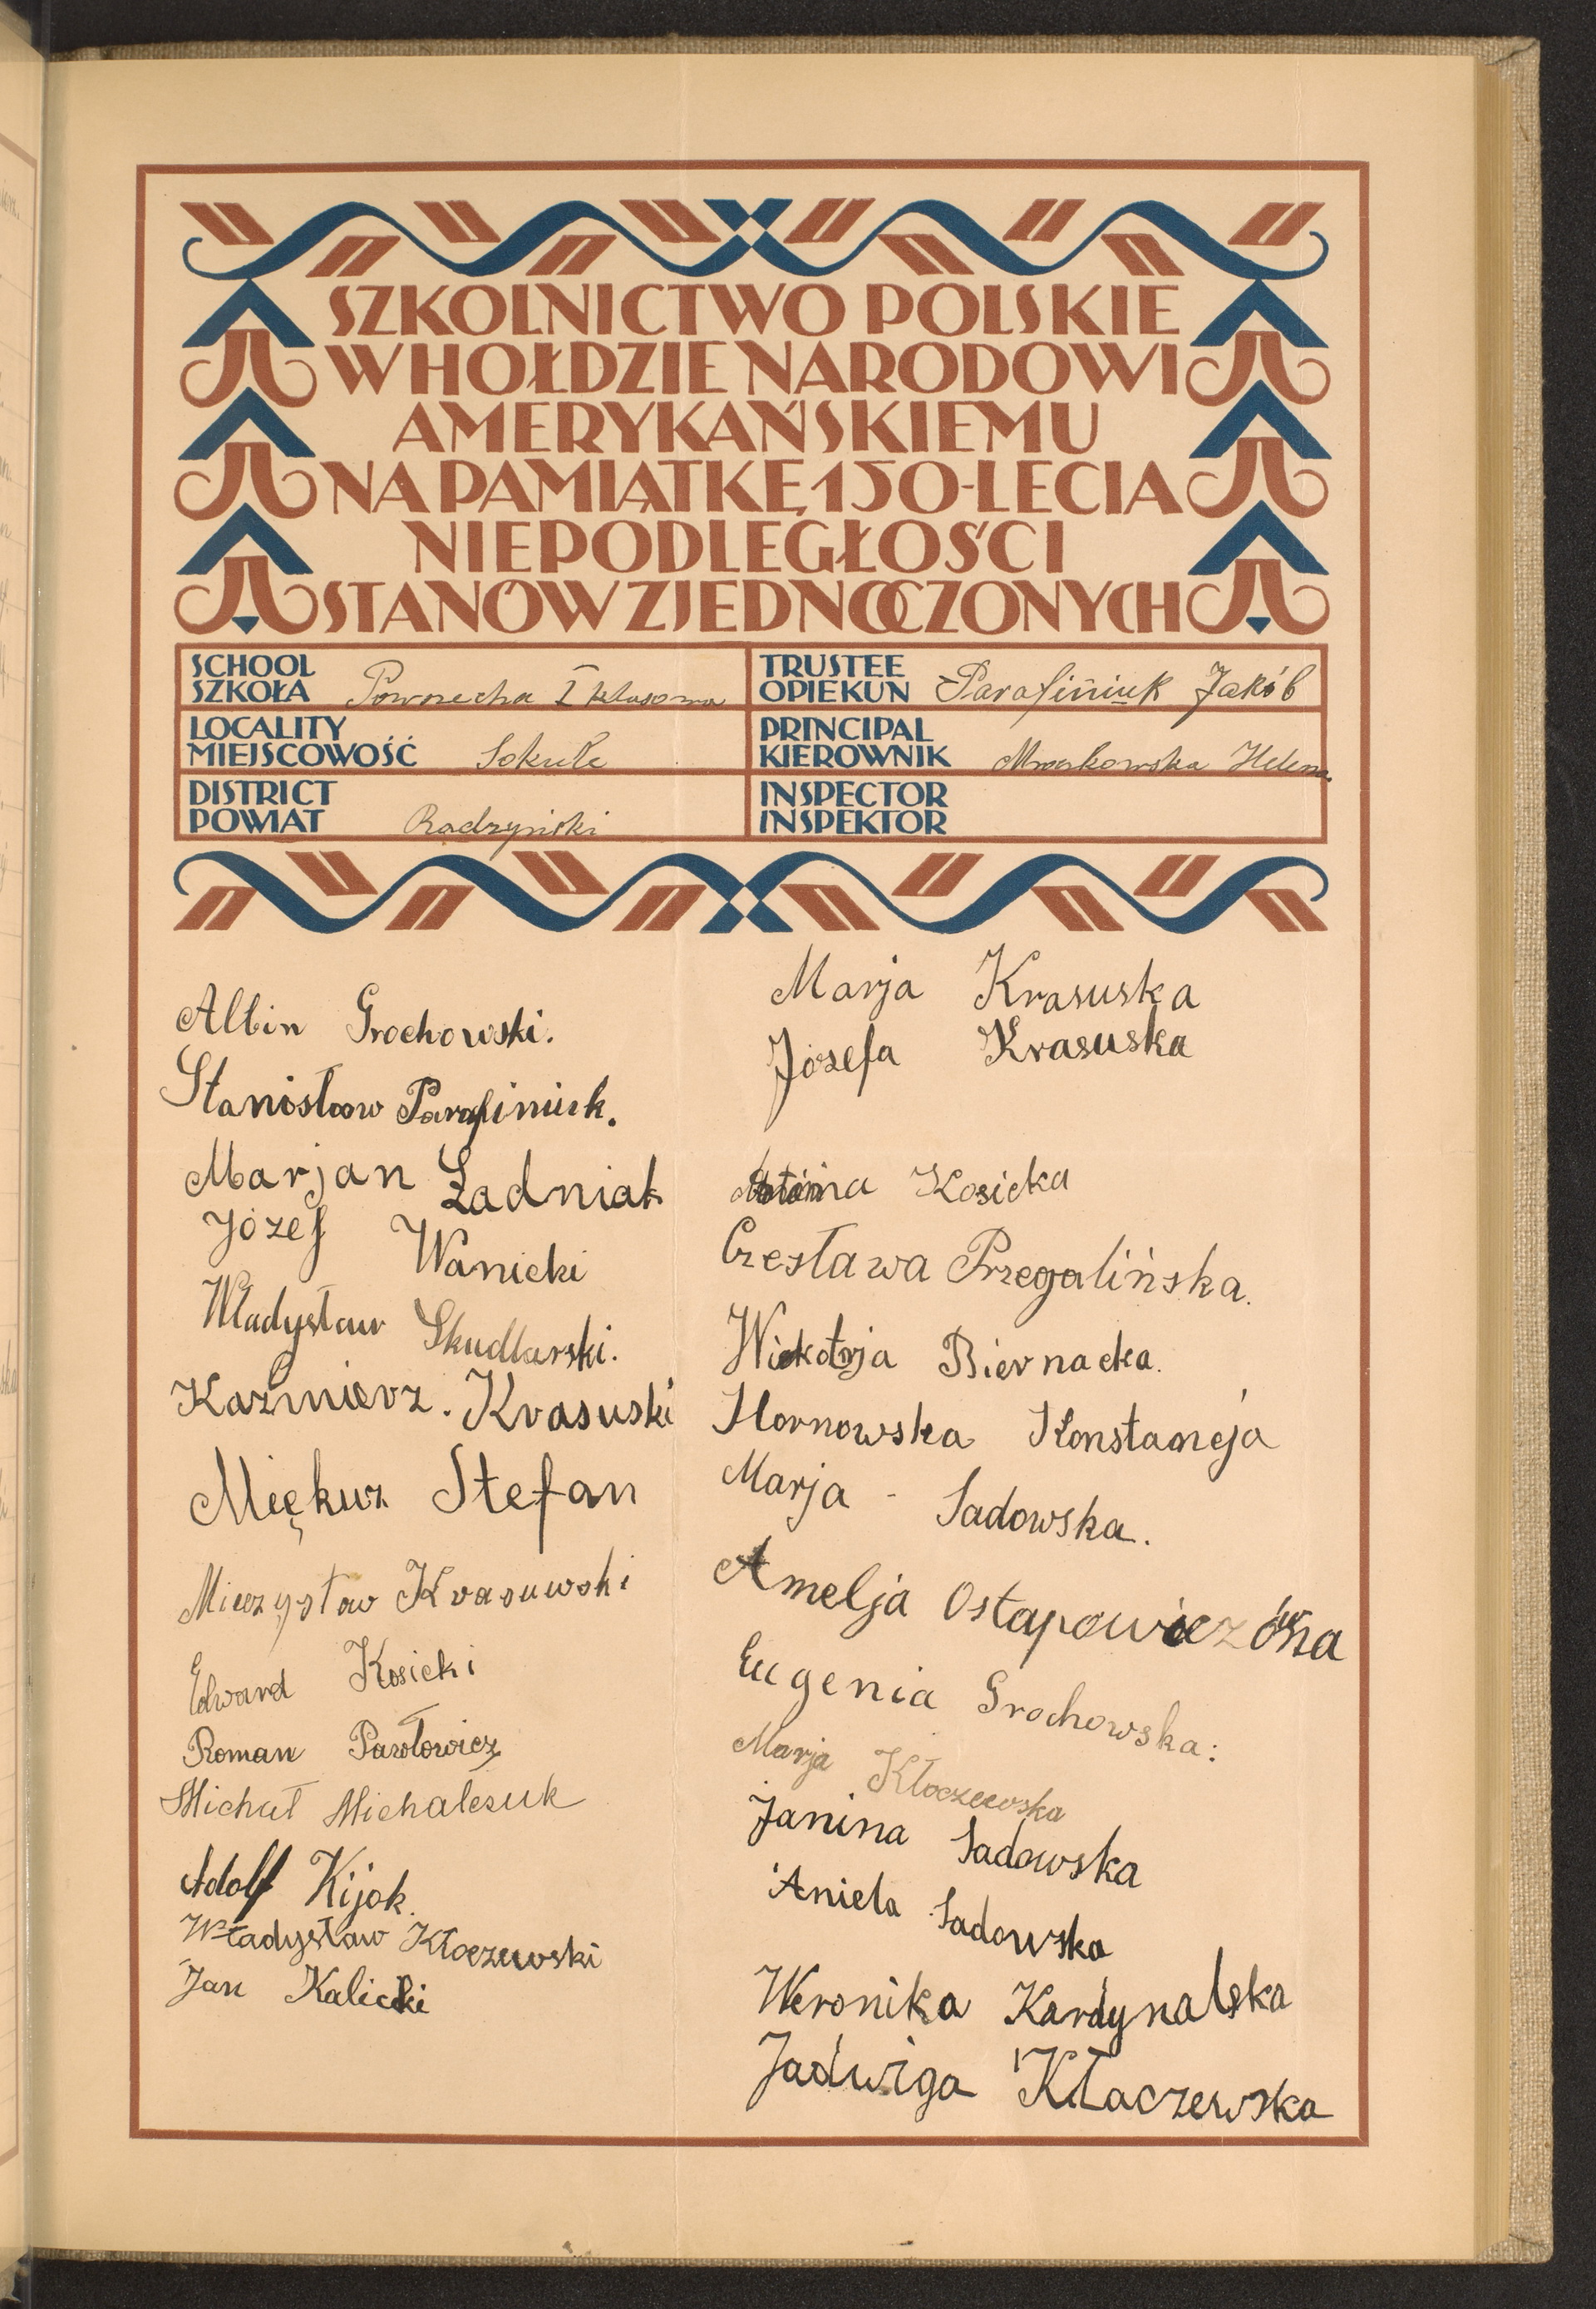 SZKOLNICTWO POLSKIE
W HOŁDZIE NARODOWI
AMERYKAŃSKIEMU
NA PAMIĄTKĘ 150-LECIA
NIEPODLEGŁOŚCI
STANÓW ZJEDNOCZONYCH
SCHOOL
SZKOŁA Powszechna I klasowa
TRUSTEE
OPIEKUN Parafiniuk Jakób
LOCALITY
MIEJSCOWOŚĆ Sokule
PRINCIPAL
KIEROWNIK Mrozkowska Helena
DISTRICT
POWIAT Radzyński
INSPECTOR
INSPEKTOR
Albin Grochowski.
Stanisław Parafiniuk.
Marjan Ładniak
Józef Wanicki
Władysław Skudlarski.
Kaźmierz. Krasuski
Miękus Stefan
Mieczysław Krasuwski
Edward Kosicki
Roman Pawłowicz
Michał Michalczuk
Adolf Kijok.
Władysław Kłoczewski
Jan Kalicki
Marja Krasuska
Józefa Krasuska
Kosicka
Czesława Przegalińska.
Wicktorja Biernacka.
Hornowska Konstancja
Marja - Sadowska.
Amelja Ostapowiczówna
Eugenia Grochowska:
Marja Kłoczewska
Janina Sadowska
Aniela Sadowska
Weronika Kardynalska
Jadwiga Kłaczewska